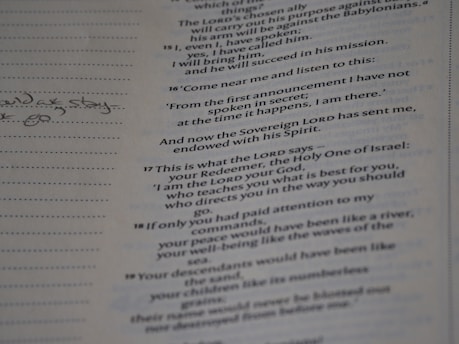 which of
things?
The LORD's chosen ally
will carry out his purpose against
his arm will be against the Babylonians.
15 I, even I, have spoken;
yes, I have called him.
I will bring him,
and he will succeed in his mission.
16 'Come near me and listen to this:
'From the first announcement I have not
spoken in secret;
at the time it happens, I am there.'
And now the Sovereign LORD has sent me,
endowed with his Spirit.
17 This is what the LORD says –
your Redeemer, the Holy One of Israel:
'I am the LORD your God,
who teaches you what is best for you,
who directs you in the way you should
go.
18 If only you had paid attention to my
commands,
your peace would have been like a river,
your well-being like the waves of the
sea.
19 Your descendants would have been like
the sand,
your children like its numberless
grains;
their name would never be blotted out
nor destroyed from before me.'
stay
go,